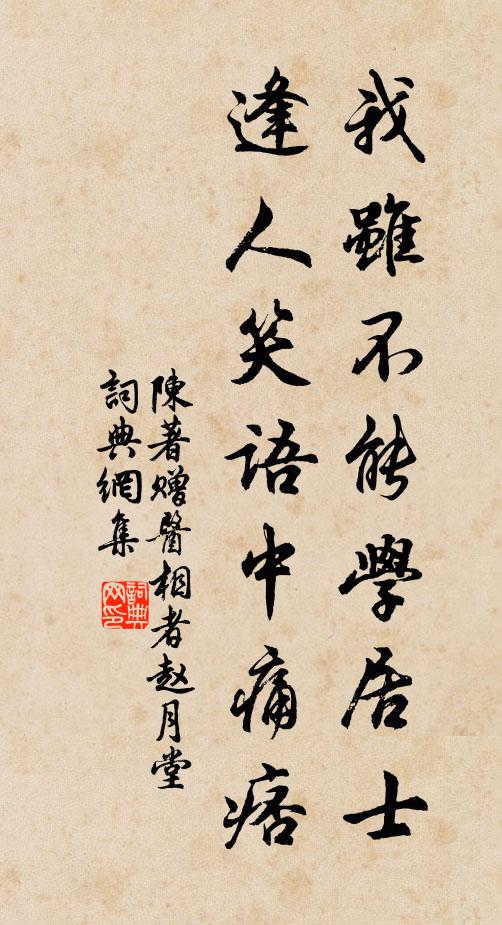 我雖不能學居士
逢人笑語中痛痞
陳著赠醫相者赵月堂
詞典網集
詞典网印